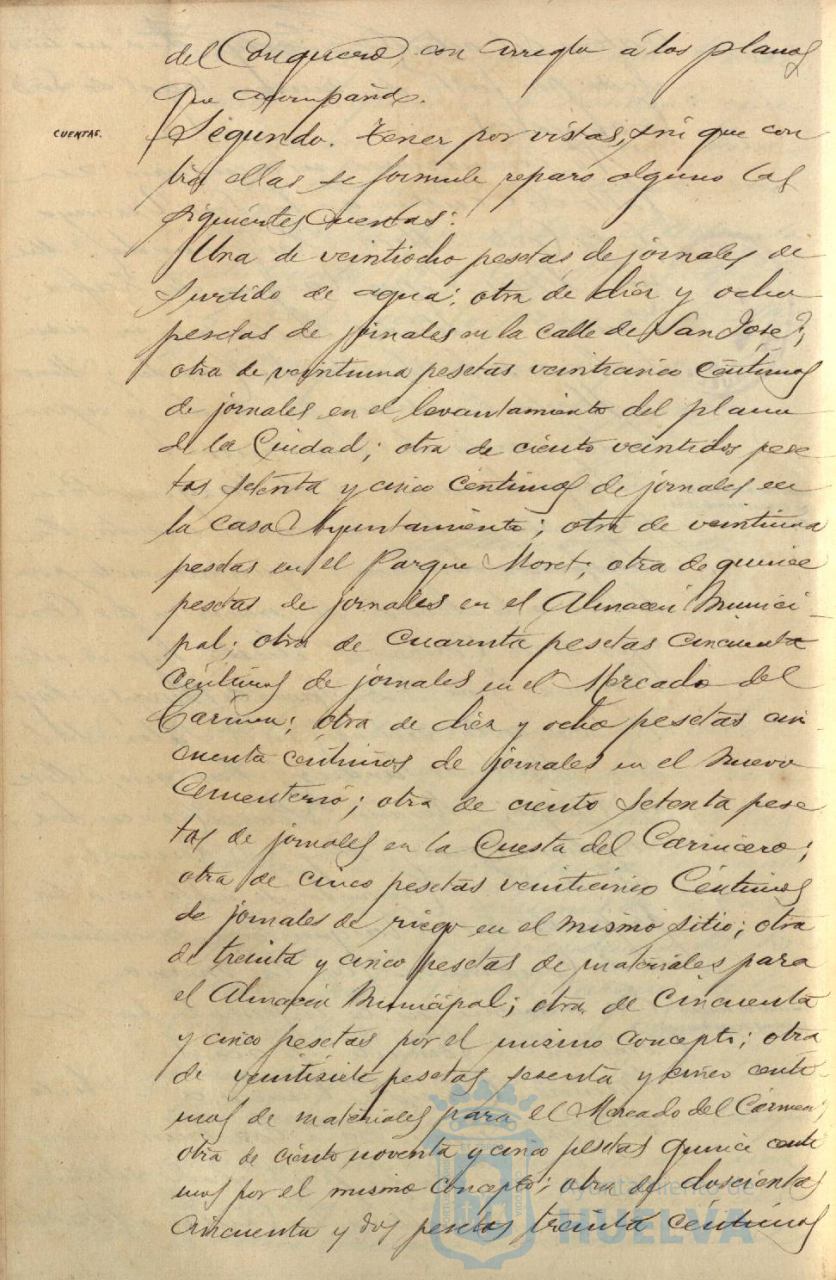 del Conquero, con arreglo á los planos
que acompaña.
CUENTAS.
Segundo. Tener por vistas, sin que con
tra ellas se formule reparo alguno las
siguientes cuentas:
Una de veintiocho pesetas de jornales de
surtido de agua; otra de diez y ocho
pesetas de jornales en la calle de San José;
otra de veintiuna pesetas veinticinco céntimos
de jornales en el levantamiento del plano
de la Ciudad; otra de ciento veintidos pese
tas setenta y cinco céntimos de jornales en
la casa Ayuntamiento; otra de veintiuna
pesetas en el Parque Moret; otra de quince
pesetas de jornales en el Almacén Munici-
pal; otra de cuarenta pesetas cincuenta
céntimos de jornales en el Mercado del
Carmen; otra de diez y ocho pesetas cin
cuenta céntimos de jornales en el nuevo
Cementerio; otra de ciento setenta pese
tas de jornales en la Cuesta del Carnicero;
otra de cinco pesetas veinticinco céntimos
de jornales de riego en el mismo sitio; otra
de treinta y cinco pesetas de materiales para
el Almacén Municipal; otra de cincuenta
y cinco pesetas por el mismo concepto; otra
de veintisiete pesetas sesenta y cinco cénti
mos de materiales para el Mercado del Cármen;
otra de ciento noventa y cinco pesetas quince cénti
mos por el mismo concepto; otra de doscientas
cincuenta y dos pesetas treinta céntimos
Ayuntamiento de
HUELVA